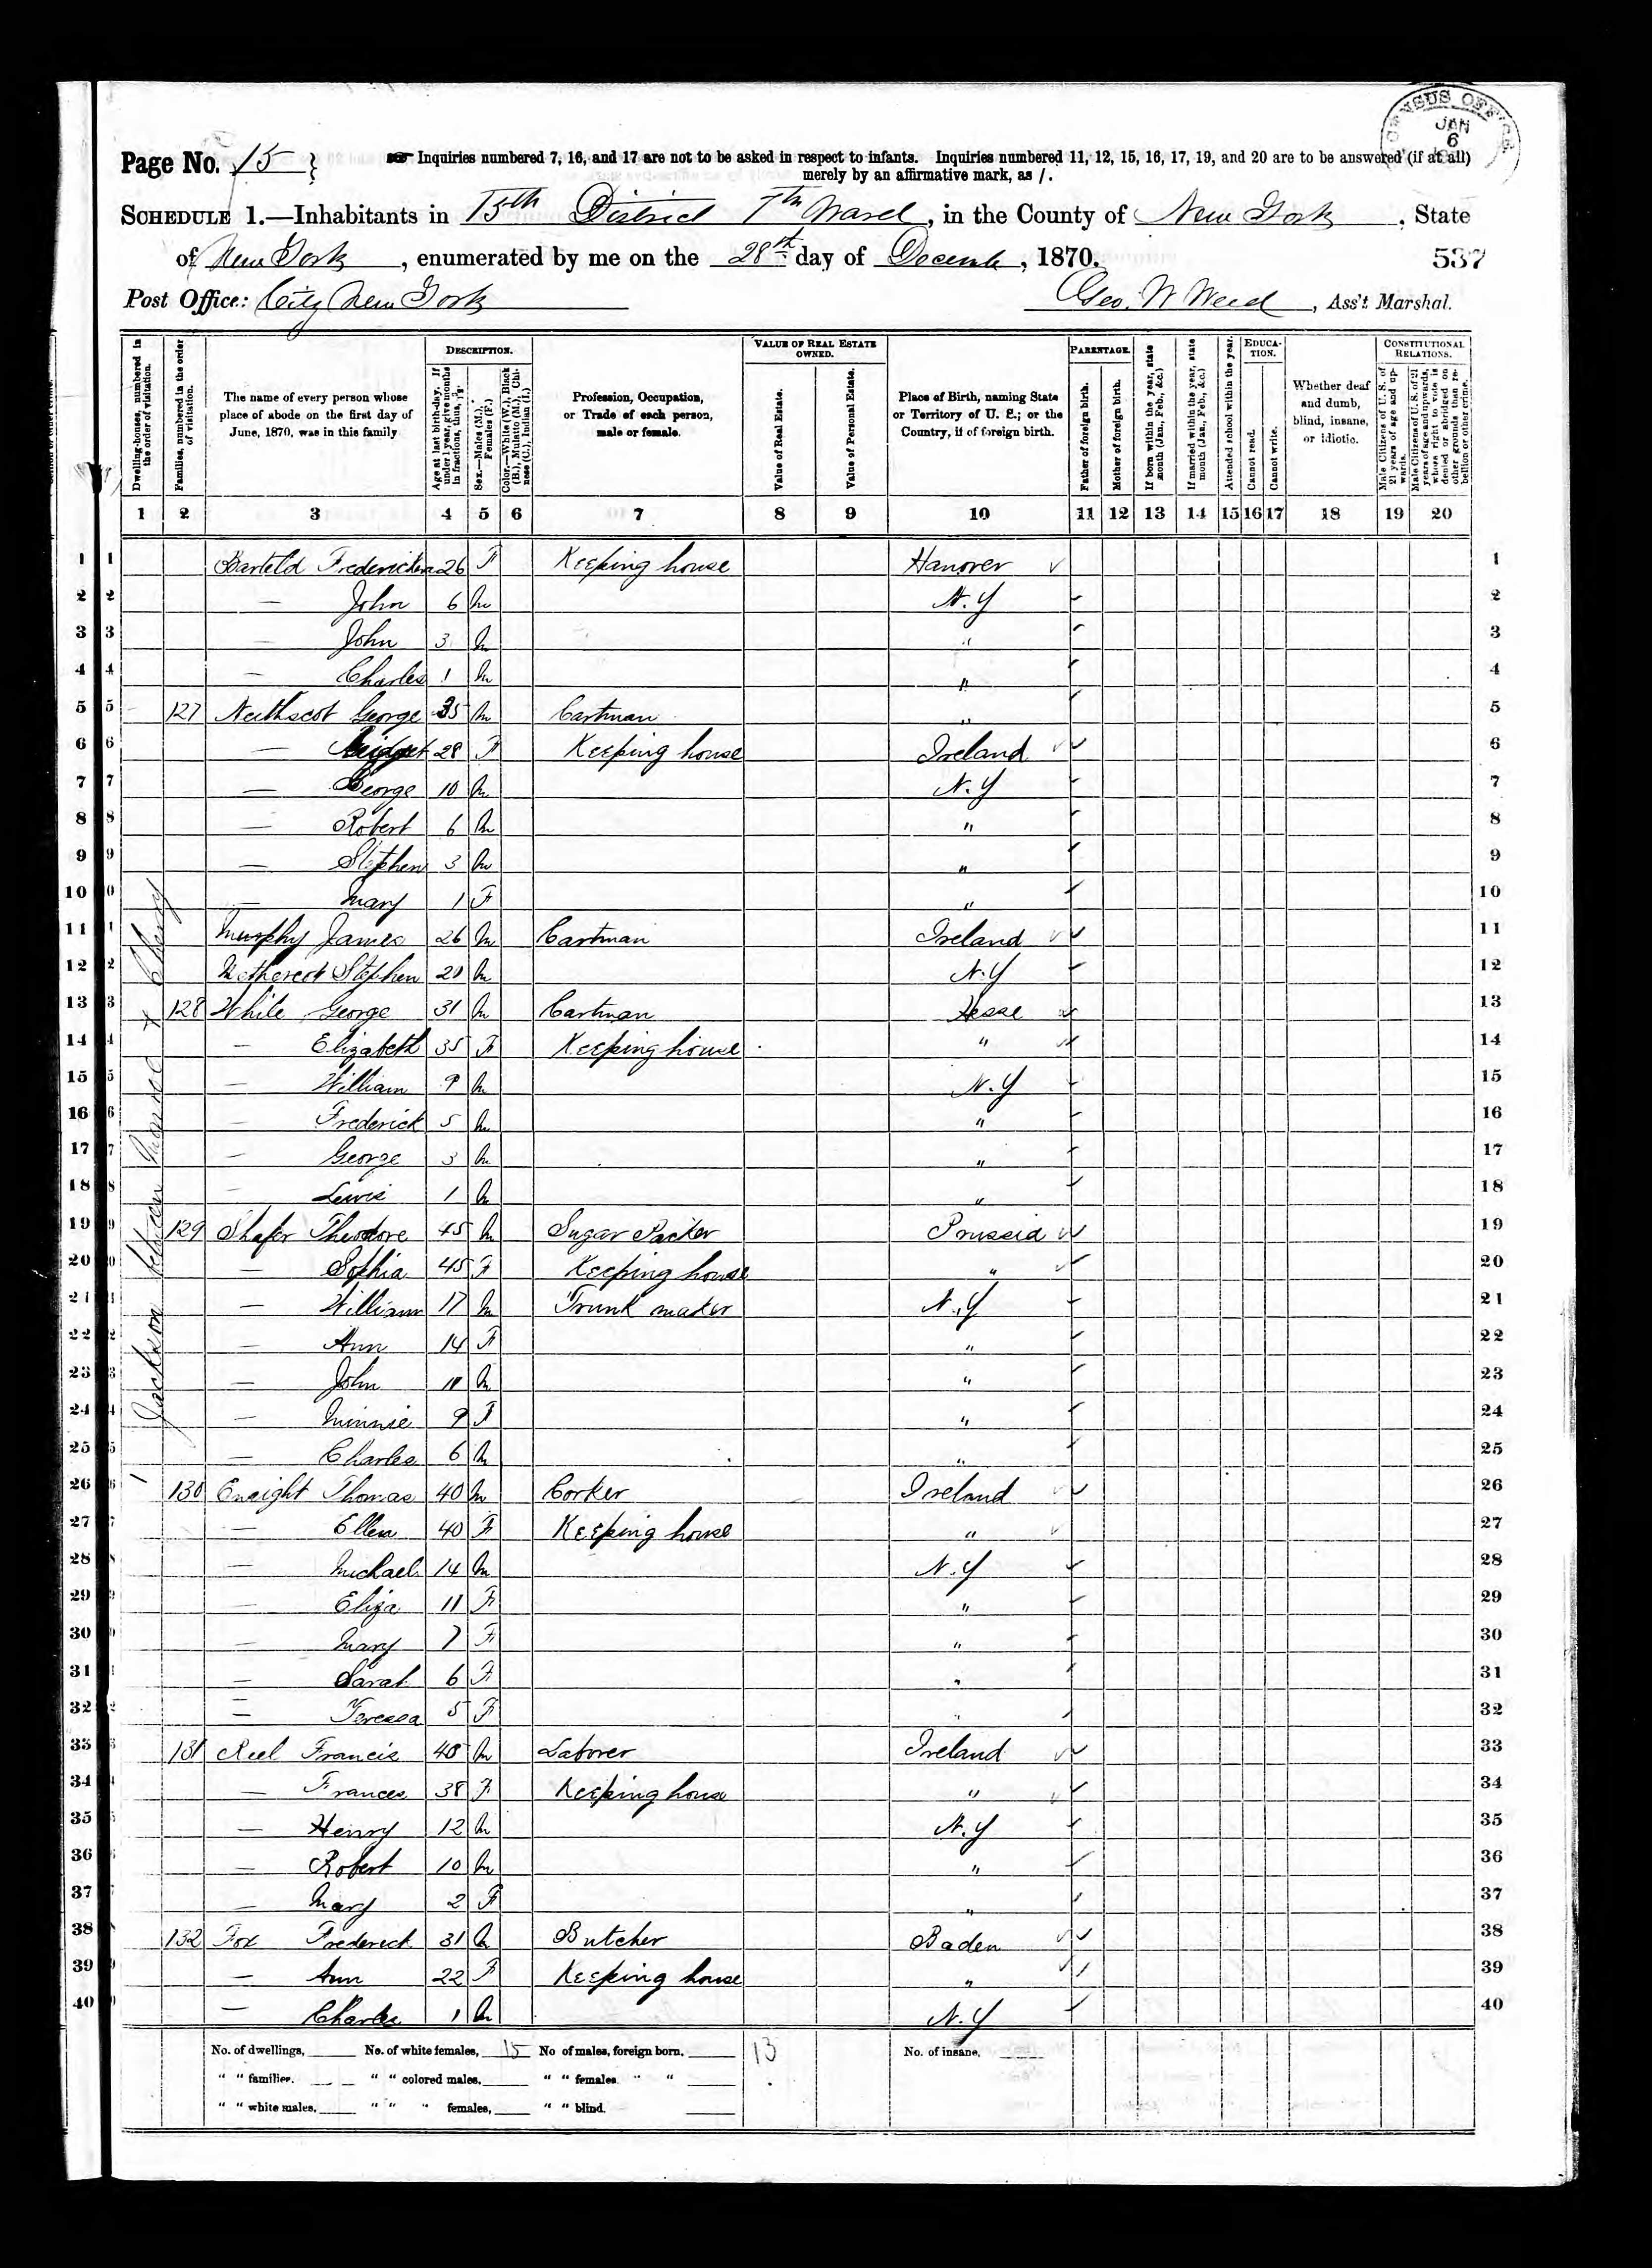 CENSUS OFFICE
JAN
6
Page No. 15
Inquiries numbered 7, 16, and 17 are not to be asked in respect to infants. Inquiries numbered 11, 12, 15, 16, 17, 19, and 20 are to be answered (if at all)
merely by an affirmative mark, as /.
SCHEDULE 1.—Inhabitants in 15th District 7th Ward, in the County of New York, State
of New York, enumerated by me on the 28th day of Decemb, 1870. 537
Post Office: City New York Geo. W Weed, Ass't Marshal.
Dwelling-houses, numbered in the order of visitation.
Families, numbered in the order of visitation.
The name of every person whose place of abode on the first day of June, 1870, was in this family
DESCRIPTION.
Age at last birth-day. If under 1 year, give months in fractions, thus,
Sex.—Males (M.), Females (F.)
Color.—White (W.), Black (B.), Mulatto (M.), Chinese (C.), Indian (I.)
Profession, Occupation, or Trade of each person, male or female.
VALUE OF REAL ESTATE OWNED.
Value of Real Estate.
Value of Personal Estate.
Place of Birth, naming State or Territory of U. S.; or the Country, if of foreign birth.
PARENTAGE.
Father of foreign birth.
Mother of foreign birth.
If born within the year, state month (Jan., Feb., &c.)
If married within the year, state month (Jan., Feb., &c.)
Attended school within the year.
EDUCATION.
Cannot read.
Cannot write.
Whether deaf and dumb, blind, insane, or idiotic.
CONSTITUTIONAL RELATIONS.
Male Citizens of U. S. of 21 years of age and upwards.
Male Citizens of U. S. of 21 years of age and upwards, whose right to vote is denied or abridged on other grounds than rebellion or other crime.
1 2 3 4 5 6 7 8 9 10 11 12 13 14 15 16 17 18 19 20
Jackson between Monroe & Cherry
1 Barteld 26 F Keeping house Hanover 1
2 — John 6 M N.Y 2
3 — John 3 M " 3
4 — Charles 1 M " 4
5 127 George 35 M Cartman " 5
6 — Bridget 28 F Keeping house Ireland 6
7 — George 10 M N.Y 7
8 — Robert 6 M " 8
9 — Stephen 3 M " 9
10 — Mary 1 F " 10
11 Murphy James 26 M Cartman Ireland 11
12 Stephen 20 M N.Y 12
13 128 White George 31 M Cartman Hesse 13
14 — Elizabeth 35 F Keeping house " 14
15 — William 9 M N.Y 15
16 — Frederick 5 M " 16
17 — George 3 M " 17
18 — Lewis 1 M " 18
19 129 Shafer Theodore 45 M Sugar Packer Prussia 19
20 — Sophia 45 F Keeping house " 20
21 — William 17 M Trunk maker N.Y 21
22 — Ann 14 F " 22
23 — John 11 M " 23
24 — Minnie 9 F " 24
25 — Charles 6 M " 25
26 130 Enright Thomas 40 M Corker Ireland 26
27 — Ellen 40 F Keeping house " 27
28 — Michael 14 M N.Y 28
29 — Eliza 11 F " 29
30 — Mary 7 F " 30
31 — Sarah 6 F " 31
32 — Teressa 5 F " 32
33 131 Reel Francis 40 M Laborer Ireland 33
34 — Frances 38 F Keeping house " 34
35 — Henry 12 M N.Y 35
36 — Robert 10 M " 36
37 — Mary 2 F " 37
38 132 Fox Frederick 31 M Butcher Baden 38
39 — Ann 22 F Keeping house " 39
40 — Charles 1 M N.Y 40
No. of dwellings, No. of white females, 15 No of males, foreign born, 13 No. of insane,
" " families. " " colored males, " " females " "
" " white males, " " " females, " " blind.